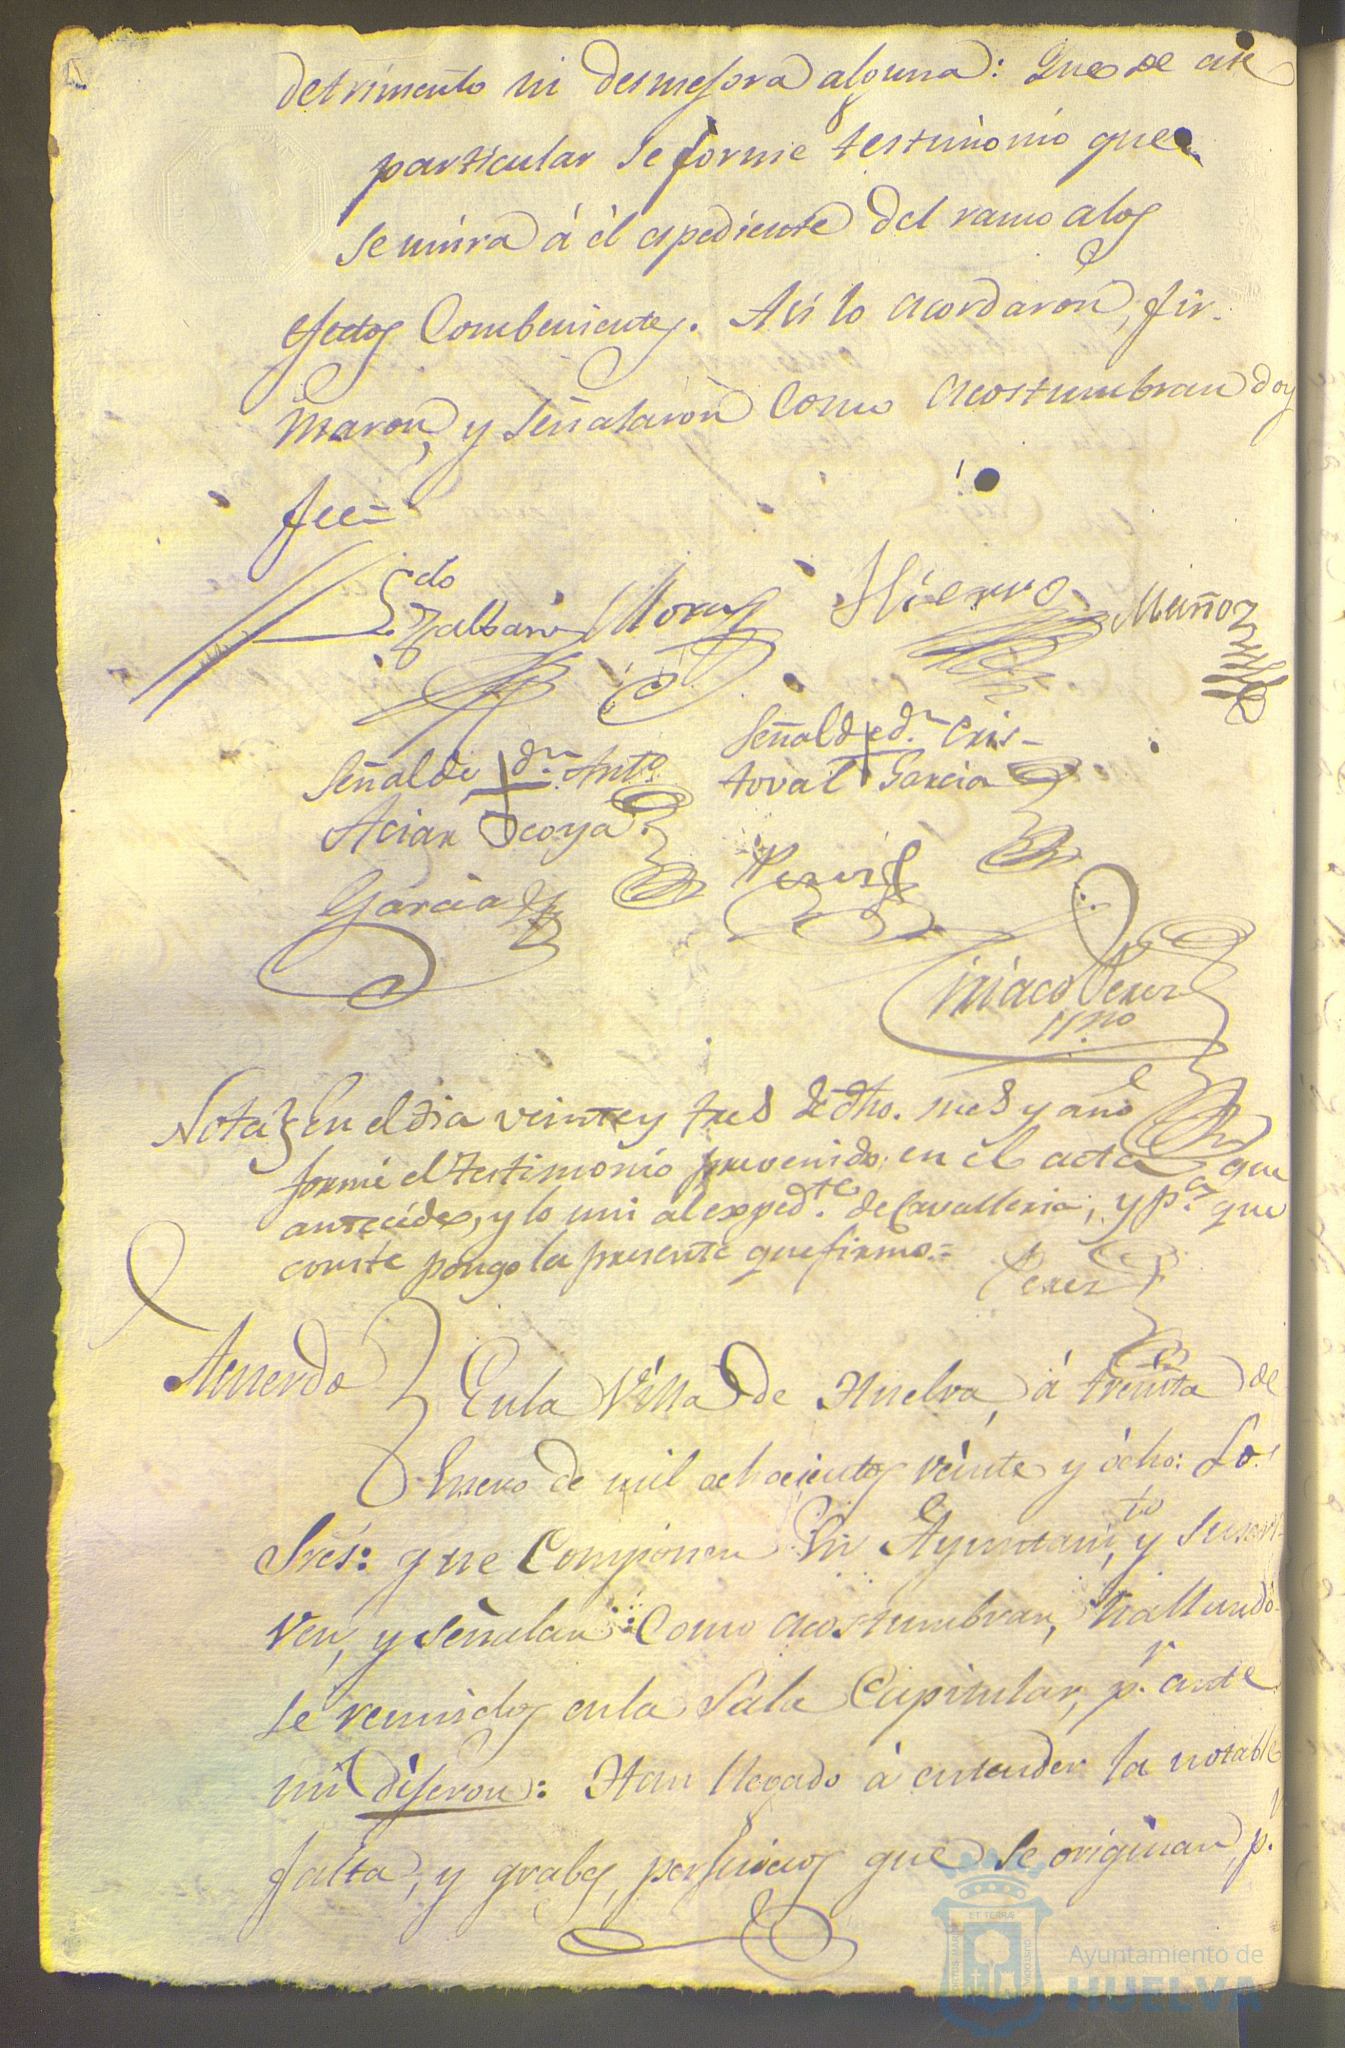 detrimento ni desmejora alguna: Que de este
particular se forme testimonio que
se unira á él espediente del ramo a los
efectos Combenientes. Asi lo acordaron, fir-
maron, y señalaron como acostumbran doy
feè=
Moras Hierro Muñoz
Señal de dn. Anto.
Acian Tcoya.
Señal de dn. Cris-
toval Garcia
Garcia
Perez
Ciriaco Perez
Nota } En el dia veinte y tres de dho. mes y año
formé el testimonio prevenido en el acta que
antecede, y lo uni al expedte. de Cavalleria; y pa. que
conste pongo la presente que firmo.=
Perez
Acuerdo } En la Villa de Huelva á treinta de
Enero de mil ochocientos veinte y ocho: Los
Sres: que Componen su Ayuntamto. y suscri-
ven, y señalan como acostumbran, hallando-
se reunidos en la Sala Capitular, pr. ante
mi dijeron: Han llegado á entender la notable
falta, y grabes perjuicios que se originan, pr.
ET TERRAE
Ayuntamiento de
HUELVA